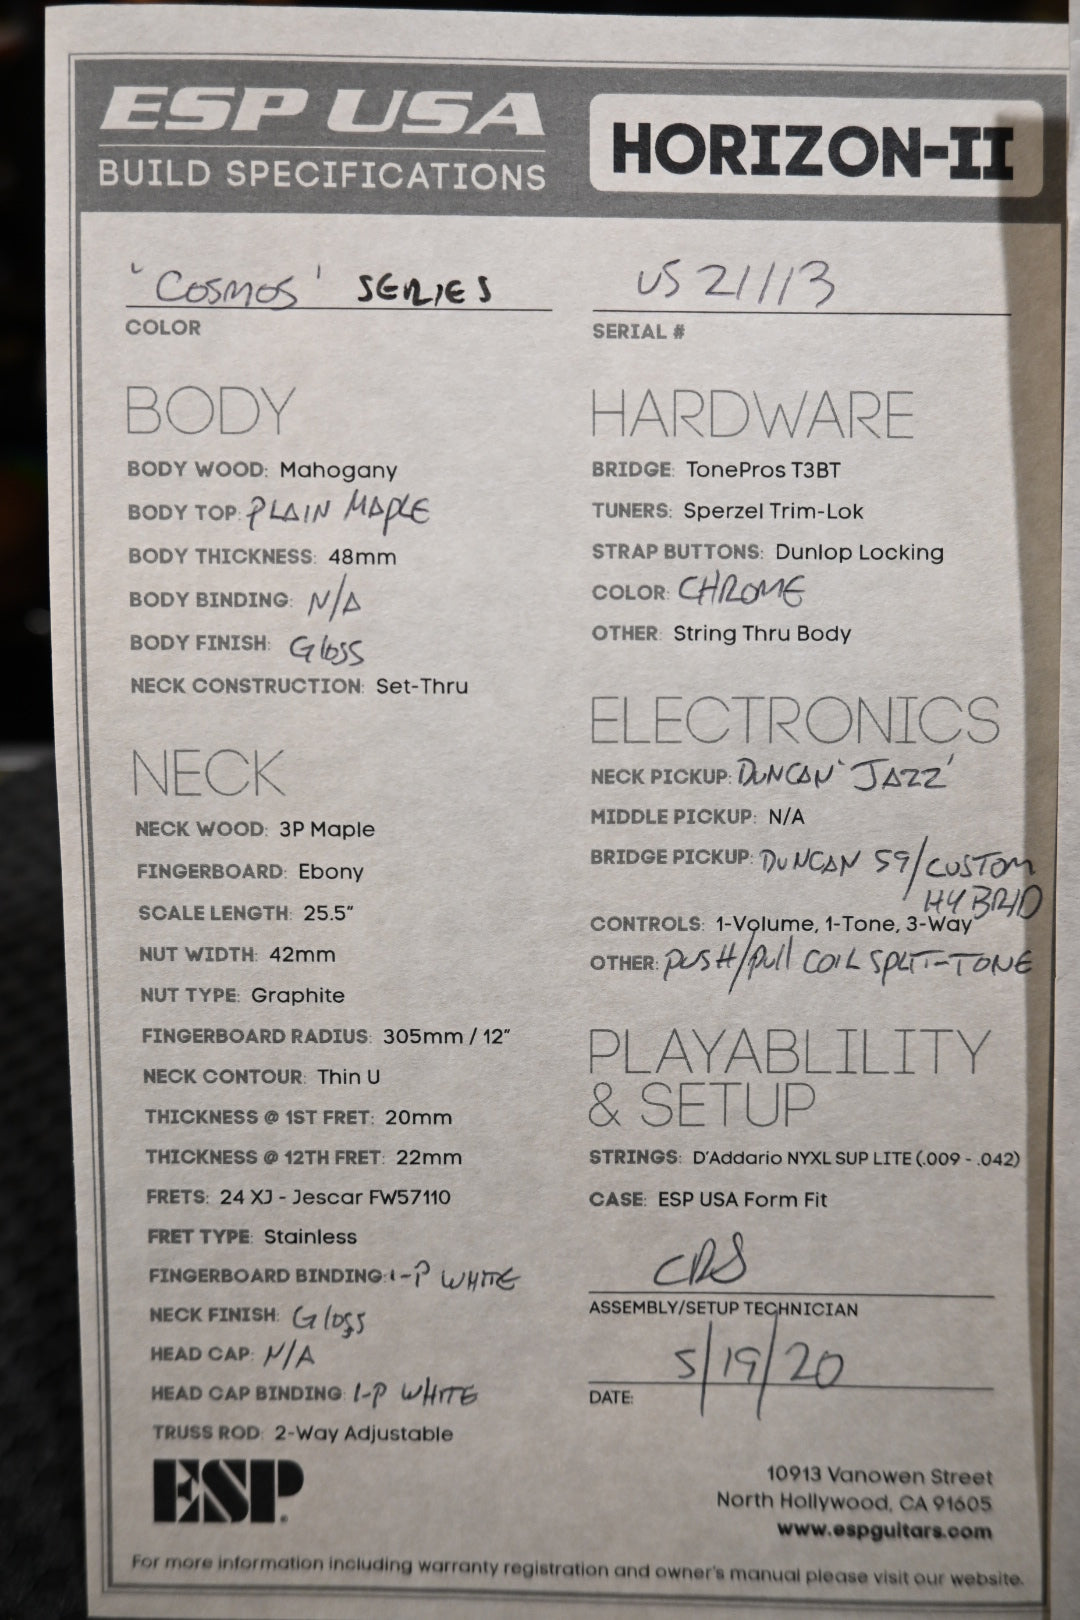 ESP USA
BUILD SPECIFICATIONS
HORIZON-II
'COSMOS' SERIES
COLOR
US 21113
SERIAL #
BODY
BODY WOOD: Mahogany
BODY TOP: PLAIN MAPLE
BODY THICKNESS: 48mm
BODY BINDING: N/A
BODY FINISH: Gloss
NECK CONSTRUCTION: Set-Thru
NECK
NECK WOOD: 3P Maple
FINGERBOARD: Ebony
SCALE LENGTH: 25.5"
NUT WIDTH: 42mm
NUT TYPE: Graphite
FINGERBOARD RADIUS: 305mm / 12"
NECK CONTOUR: Thin U
THICKNESS @ 1ST FRET: 20mm
THICKNESS @ 12TH FRET: 22mm
FRETS: 24 XJ - Jescar FW57110
FRET TYPE: Stainless
FINGERBOARD BINDING: 1-P WHITE
NECK FINISH: Gloss
HEAD CAP: N/A
HEAD CAP BINDING: 1-P WHITE
TRUSS ROD: 2-Way Adjustable
HARDWARE
BRIDGE: TonePros T3BT
TUNERS: Sperzel Trim-Lok
STRAP BUTTONS: Dunlop Locking
COLOR: CHROME
OTHER: String Thru Body
ELECTRONICS
NECK PICKUP: DUNCAN 'JAZZ'
MIDDLE PICKUP: N/A
BRIDGE PICKUP: DUNCAN 59/CUSTOM
HYBRID
CONTROLS: 1-Volume, 1-Tone, 3-Way
OTHER: PUSH/PUll COIL SPLIT-TONE
PLAYABLILITY
& SETUP
STRINGS: D'Addario NYXL SUP LITE (.009 - .042)
CASE: ESP USA Form Fit
ASSEMBLY/SETUP TECHNICIAN
5/19/20
DATE:
ESP
10913 Vanowen Street
North Hollywood, CA 91605
www.espguitars.com
For more information including warranty registration and owner's manual please visit our website.